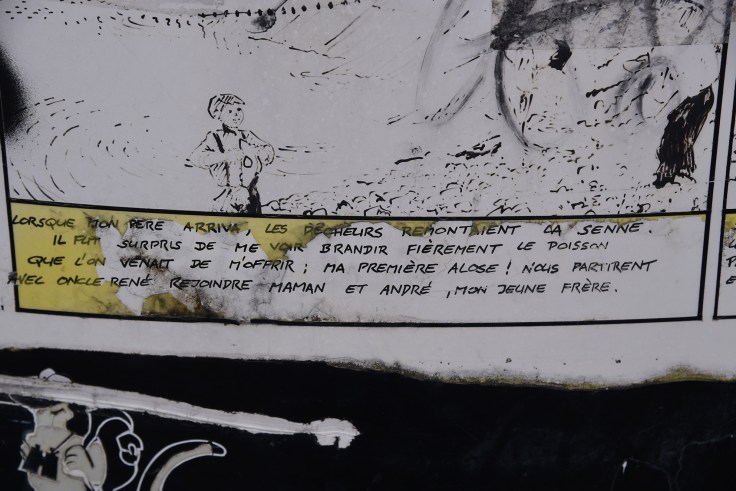 LORSQUE MON PÈRE ARRIVA, LES PÊCHEURS REMONTAIENT LA SENNE.
IL FUT SURPRIS DE ME VOIR BRANDIR FIÈREMENT LE POISSON
QUE L'ON VENAIT DE M'OFFRIR ; MA PREMIÈRE ALOSE ! NOUS PARTIRENT
AVEC ONCLE RENÉ REJOINDRE MAMAN ET ANDRÉ , MON JEUNE FRÈRE.